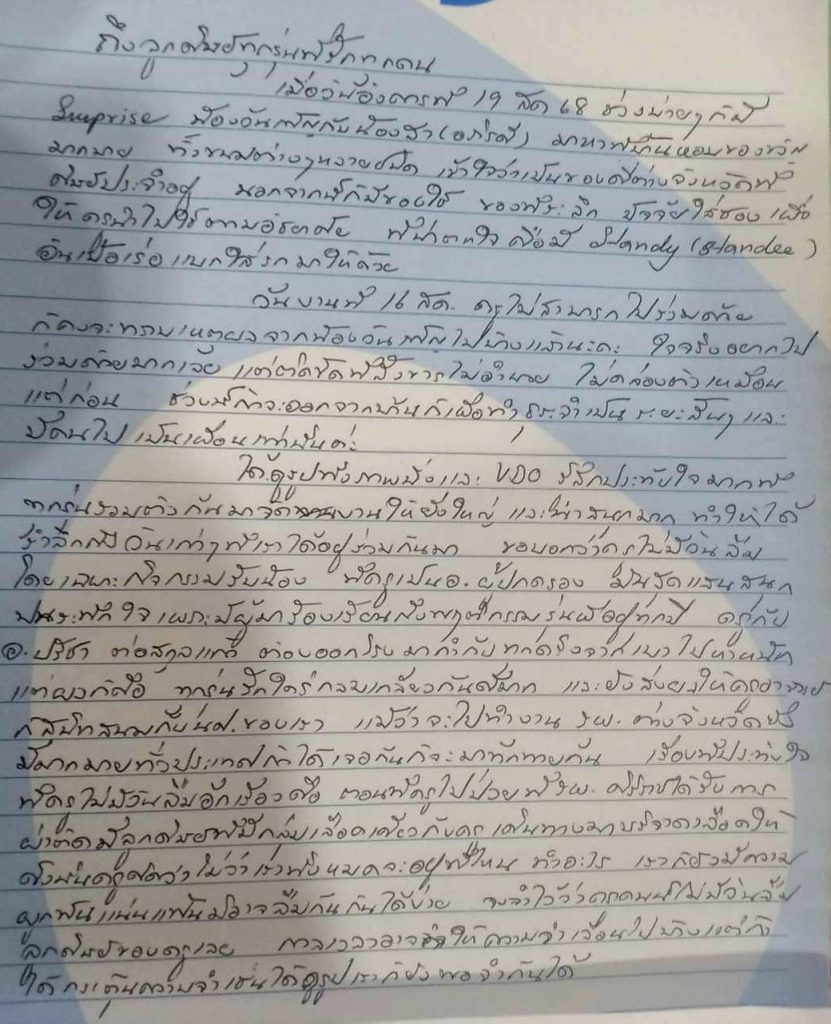 ถึงลูกศิษย์ทุกรุ่นที่รักทุกคน
เมื่อวันอังคารที่ 19 สค 68 ช่วงบ่ายๆ ก็มี
Surprise น้องวันเพ็ญกับน้องสา มาหาที่บ้านหอบของขวัญ
มากมาย ทั้งขนมต่างๆหลายชนิด เข้าใจว่าเป็นของดีต่างจังหวัดที่
ศิษย์ประจำอยู่ นอกจากนี้ก็มีของใช้ ของที่ระลึก ปัจจัยใส่ซอง เพื่อ
ให้ครูนำไปใช้ตามอัธยาศัย ที่น่าตกใจคือมี Standy (Standee)
อันเบ้อเร่อ แบกใส่รถมาให้ด้วย
วันงานที่ 16 สค. ครูไม่สามารถไปร่วมด้วย
ก็คงจะทราบเหตุผลจากน้องวันเพ็ญไปบ้างแล้วนะคะ ใจจริงอยากไป
ร่วมด้วยมากเลย แต่ติดขัดที่สังขารไม่อำนวย ไม่คล่องตัวเหมือน
แต่ก่อน ช่วงนี้ถ้าจะออกจากบ้านก็เพื่อทำธุระจำเป็น ระยะสั้นๆ และ
มีคนไปเป็นเพื่อนเท่านั้นค่ะ
ได้ดูรูปทั้งภาพนิ่งและ VDO รู้สึกประทับใจมากที่
ทุกรุ่นรวมตัวกันมาจัดงานให้ยิ่งใหญ่ และน่าสนุกมาก ทำให้ได้
รำลึกถึงวันเก่าๆที่เราได้อยู่ร่วมกันมา ขอบอกว่าครูไม่มีวันลืม
โดยเฉพาะกิจกรรมรับน้อง ที่ครูเป็นอ.ผู้ปกครอง มันสุดแสนสนุก
ปนระทึกใจ เพราะมีผู้มาร้องเรียนถึงพฤติกรรมรุ่นพี่อยู่ทุกปี ครูกับ
อ.ปรีชา ต่อสกุลแก้ว ต้องออกโรงมากำกับทุกครั้ง
แต่ผลก็คือ ทุกรุ่นรักใคร่กลมเกลียวกันดีมาก และยังส่งผลให้ครูอาจารย์
ก็สนิทสนมกับนศ.ของเรา แม้ว่าจะไปทำงาน รพ. ต่างจังหวัดซึ่ง
มีมากมายทั่วประเทศถ้าได้เจอกันก็จะมาทักทายกัน เรื่องที่ประทับใจ
ที่ครูไม่มีวันลืมอีกเรื่องคือ ตอนที่ครูไปป่วยที่รพ. ศิริราชได้รับการ
ผ่าตัดมีลูกศิษย์ที่มีกลุ่มเลือดเดียวกับครู เดินทางมาบริจาคเลือดให้
ดังนั้นครูคิดว่าไม่ว่าเราทั้งหมดจะอยู่ที่ไหน ทำอะไร เราก็ยังมีความ
ผูกพันแน่นแฟ้นมิอาจลืมกันกันได้ง่าย จงจำไว้ว่าครูคนนี้ไม่มีวันลืม
ลูกศิษย์ของครูเลย กาลเวลาอาจทำให้ความจำเลือนไปบ้างแต่ถ้า
ได้กระตุ้นความจำเช่นได้ดูรูปเราก็ยังพอจำกันได้